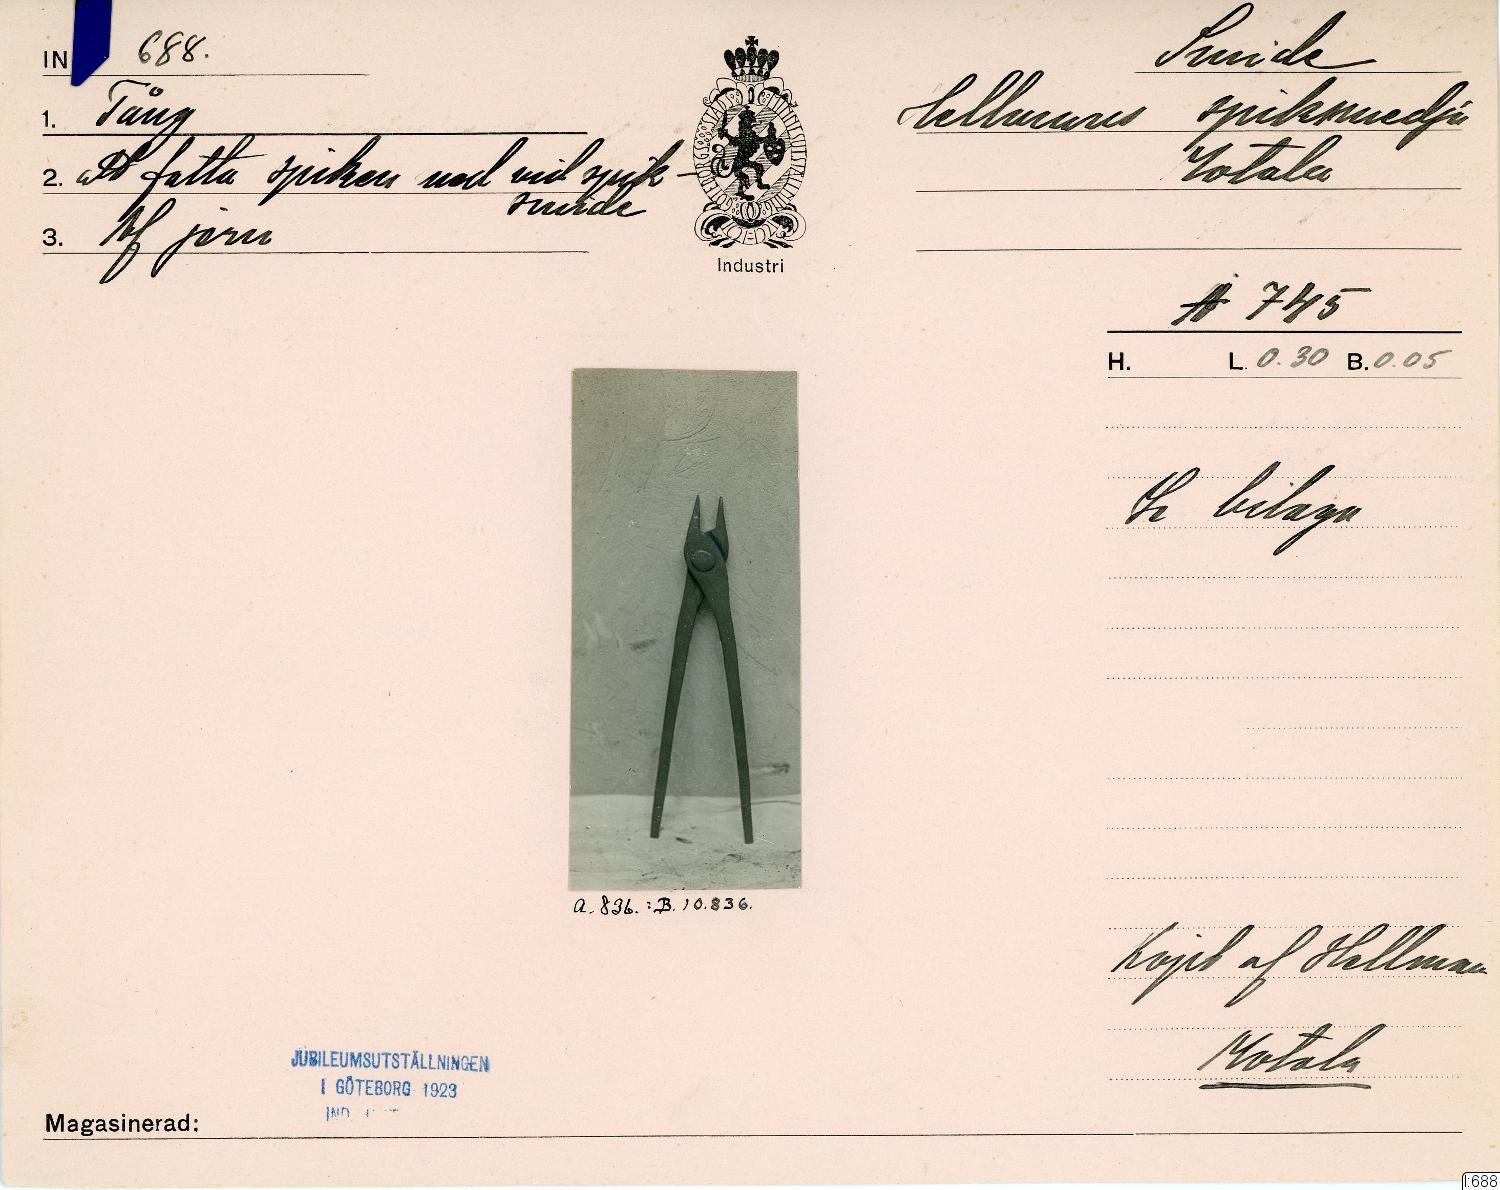 IN 688.
1. Tång
2. att fatta spiken med vid spik-
smide
3. Af jern
Industri
Smide
Hellmans spiksmedja
Motala
745
H. L. 0.30 B. 0.05
Se bilaga
a. 836. : B. 10.836.
Köpt af Hellman
Motala
JUBILEUMSUTSTÄLLNINGEN
I GÖTEBORG 1923
IND
Magasinerad:
I:688